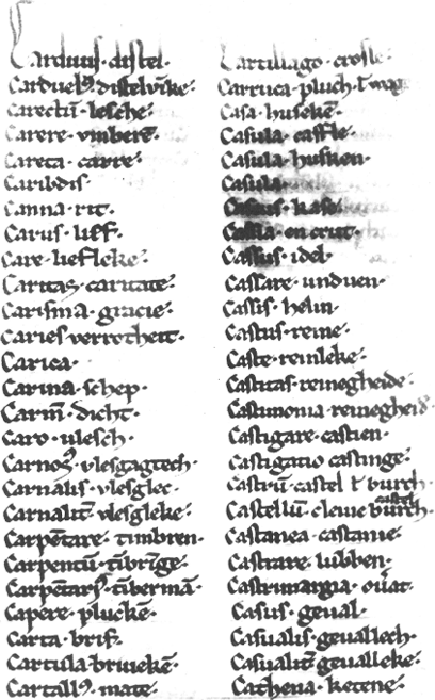 Carduus · distel ·
Carduelꝰ · distelvike ·
Carectū · lesche ·
Carere · vmberē ·
Careca · carre ·
Caribdis ·
Canna · rit ·
Carus · lief ·
Care · liefleke ·
Caritas · caritate ·
Carisma · gracie ·
Caries verrotheit ·
Carica ·
Carina · schep ·
Carm̄ · dicht ·
Caro · vlesch ·
Carnoꝰ · vlesgagtech ·
Carnalis · vlesglec ·
Carnalit̄ vlesgleke ·
Carpētare · timbren ·
Carpentū · tībrīge ·
Carpētarꝰ · tībermā ·
Capere · pluckē ·
Carta · brif ·
Cartula brieuekē ·
Cartallꝰ · mate ·
Cartilago · crosle ·
Carruca · pluch ł wage
Casa · husekē ·
Casula · casfle ·
Casula · husken ·
Casula ·
Caseus · kase ·
Cassus · idel ·
Cassare · unduen ·
Cassis · helm ·
Castus · reine ·
Caste · reinleke ·
Castitas · reinegheide ·
Castimonia · reinegheid
Castigare · castien ·
Castigatio castinge ·
Castrū · castel ł burch ·
Castellū · cleine burch · castel
Castanea · castanie ·
Castrare · lubben ·
Castrimargia · ouat ·
Casus · geual ·
Casualis · geuallech ·
Casualit̄ · geualleke ·
Cathena · ketene ·